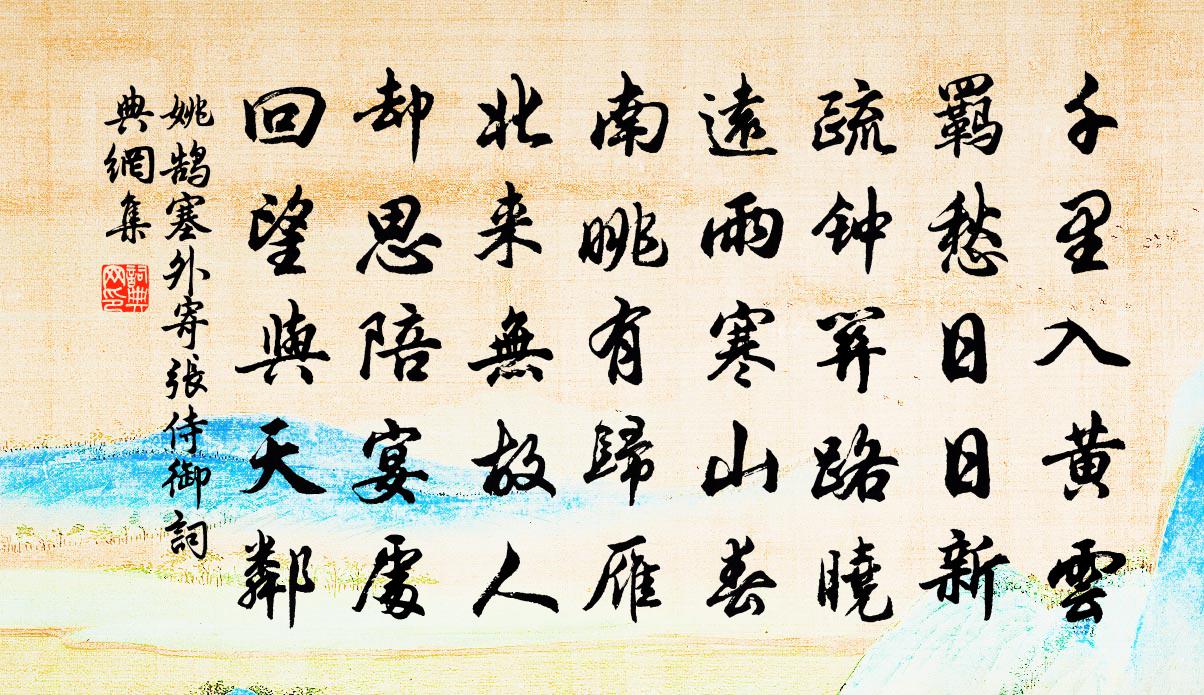 千里入黄雲
羈愁日日新
疏钟筭路曉
遠雨寒山春
南眺有歸雁
北来無故人
却思陪宴處
回望與天鄰
姚鹄塞外寄張侍御詞
典網集
詞典
网印